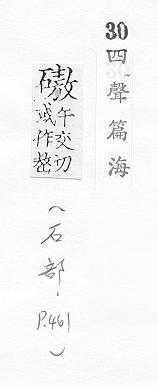 30 四聲篇海
磝 午交切
或作
(石部, P.461)